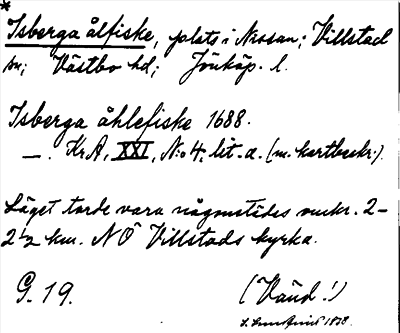 *
Isberga ålfiske, plats i Nissan; Villstad
sn; Västbo hd; Jönköp. l.
Isberga åhlefiske 1688.
—. Kr A, XXI, N:o 4, lit. a. (m. kartbeskr.).
Läget torde vara någonstädes omkr. 2–
2½ km. NO Villstads kyrka.
G. 19. (Vänd!)